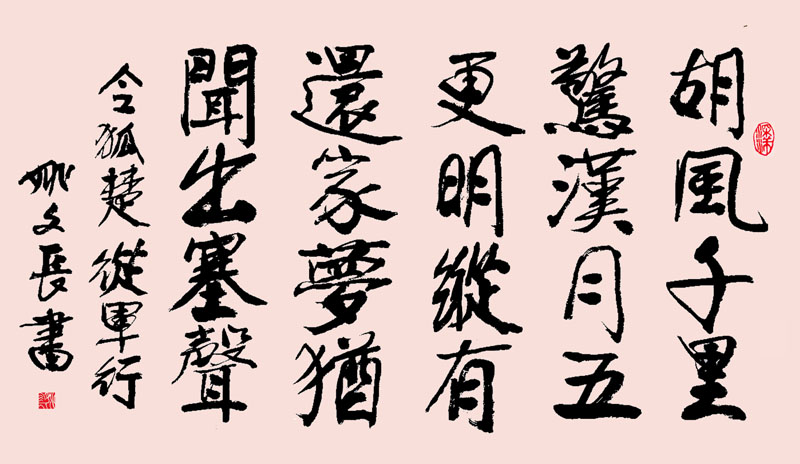 胡風千里
驚漢月五
更明縱有
還家夢猶
聞出塞聲
令狐楚從軍行
姚文長書